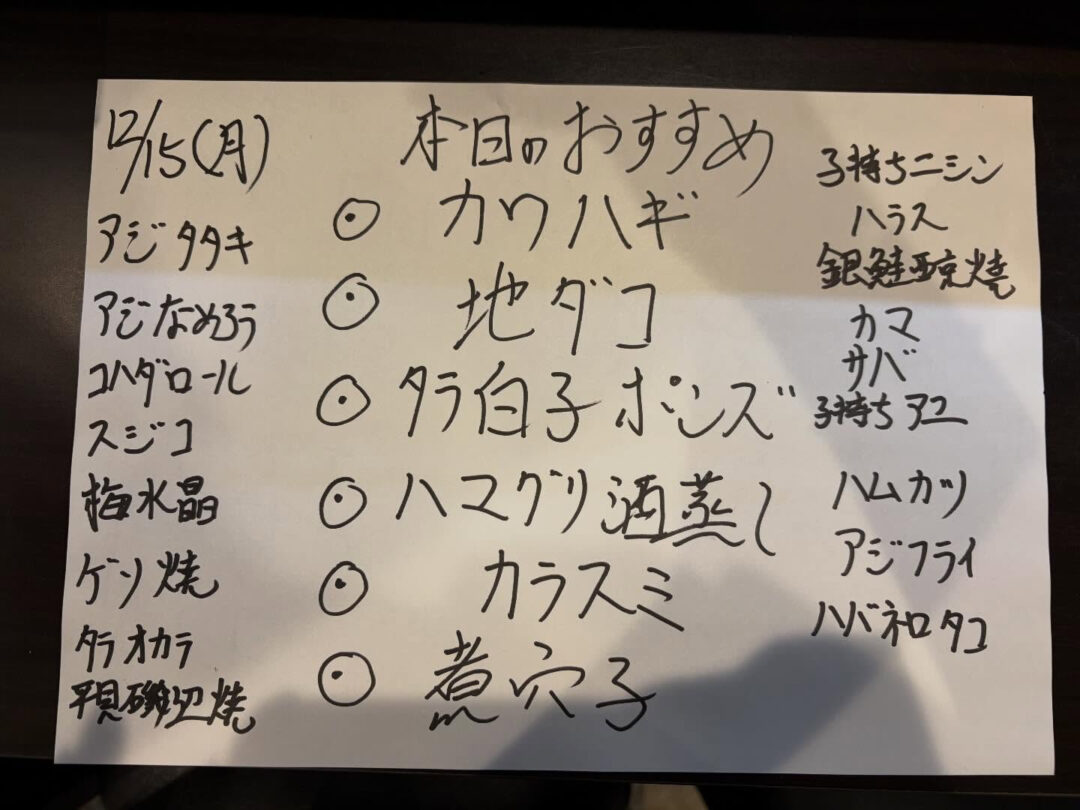 12/15(月)
アジタタキ
アジなめろう
コハダロール
スジコ
梅水晶
ゲソ焼
タラオカラ
平貝磯辺焼
本日のおすすめ
◉ カワハギ
◉ 地ダコ
◉ タラ白子ポンズ
◉ ハマグリ酒蒸し
◉ カラスミ
◉ 煮穴子
子持ちニシン
ハラス
銀鮭西京焼
カマ
サバ
子持ちアユ
ハムカツ
アジフライ
ハバネロタコ